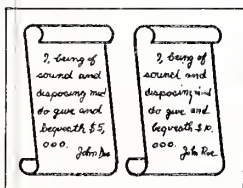 I, being of
sound and
disposing mind
do give and
bequeath $5,
000.
John Doe
I, being of
sound and
disposing mind
do give and
bequeath $10,
000.
John Roe